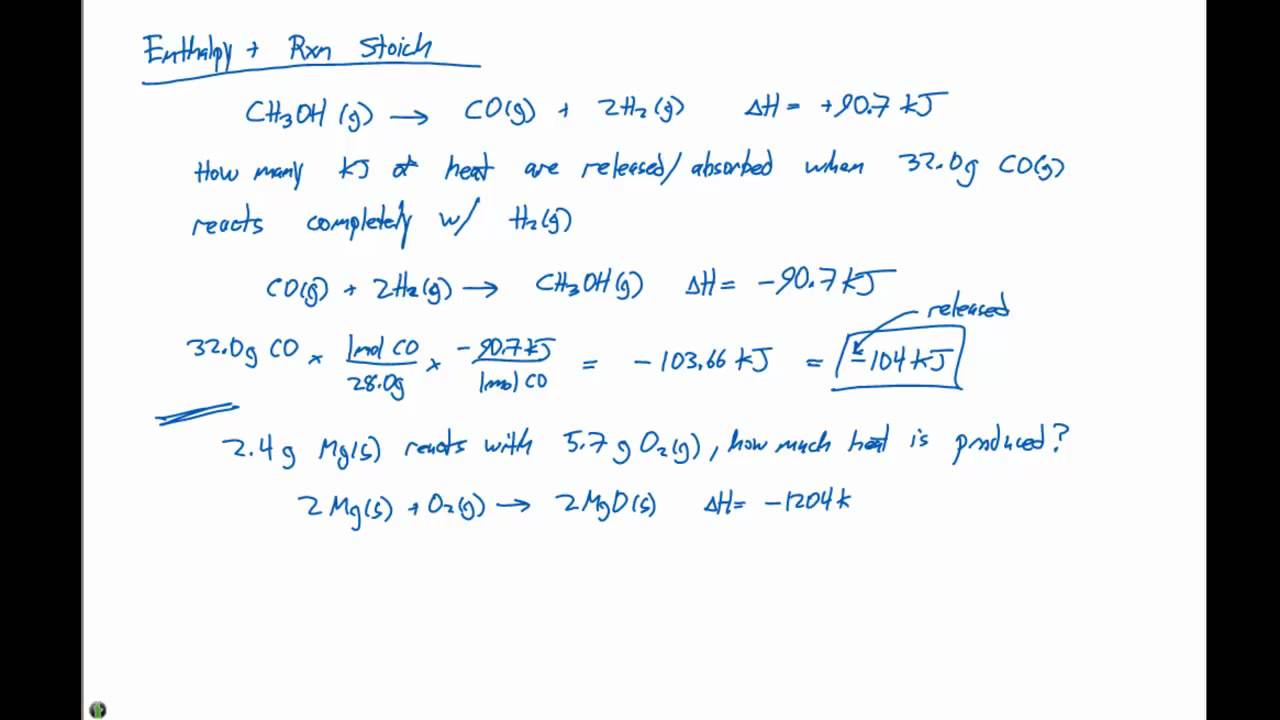 Enthalpy + Rxn Stoich
CH₃OH (g) → CO(g) + 2H₂(g) ΔH = +90.7 kJ
How many kJ of heat are released/absorbed when 32.0g CO(g)
reacts completely w/ H₂(g)
CO(g) + 2H₂(g) → CH₃OH(g) ΔH = -90.7 kJ
released
32.0g CO × 1mol CO/28.0g × -90.7kJ/1mol CO = -103.66 kJ = -104 kJ
2.4g Mg(s) reacts with 5.7g O₂(g), how much heat is produced?
2Mg(s) + O₂(g) → 2MgO(s) ΔH = -1204 k